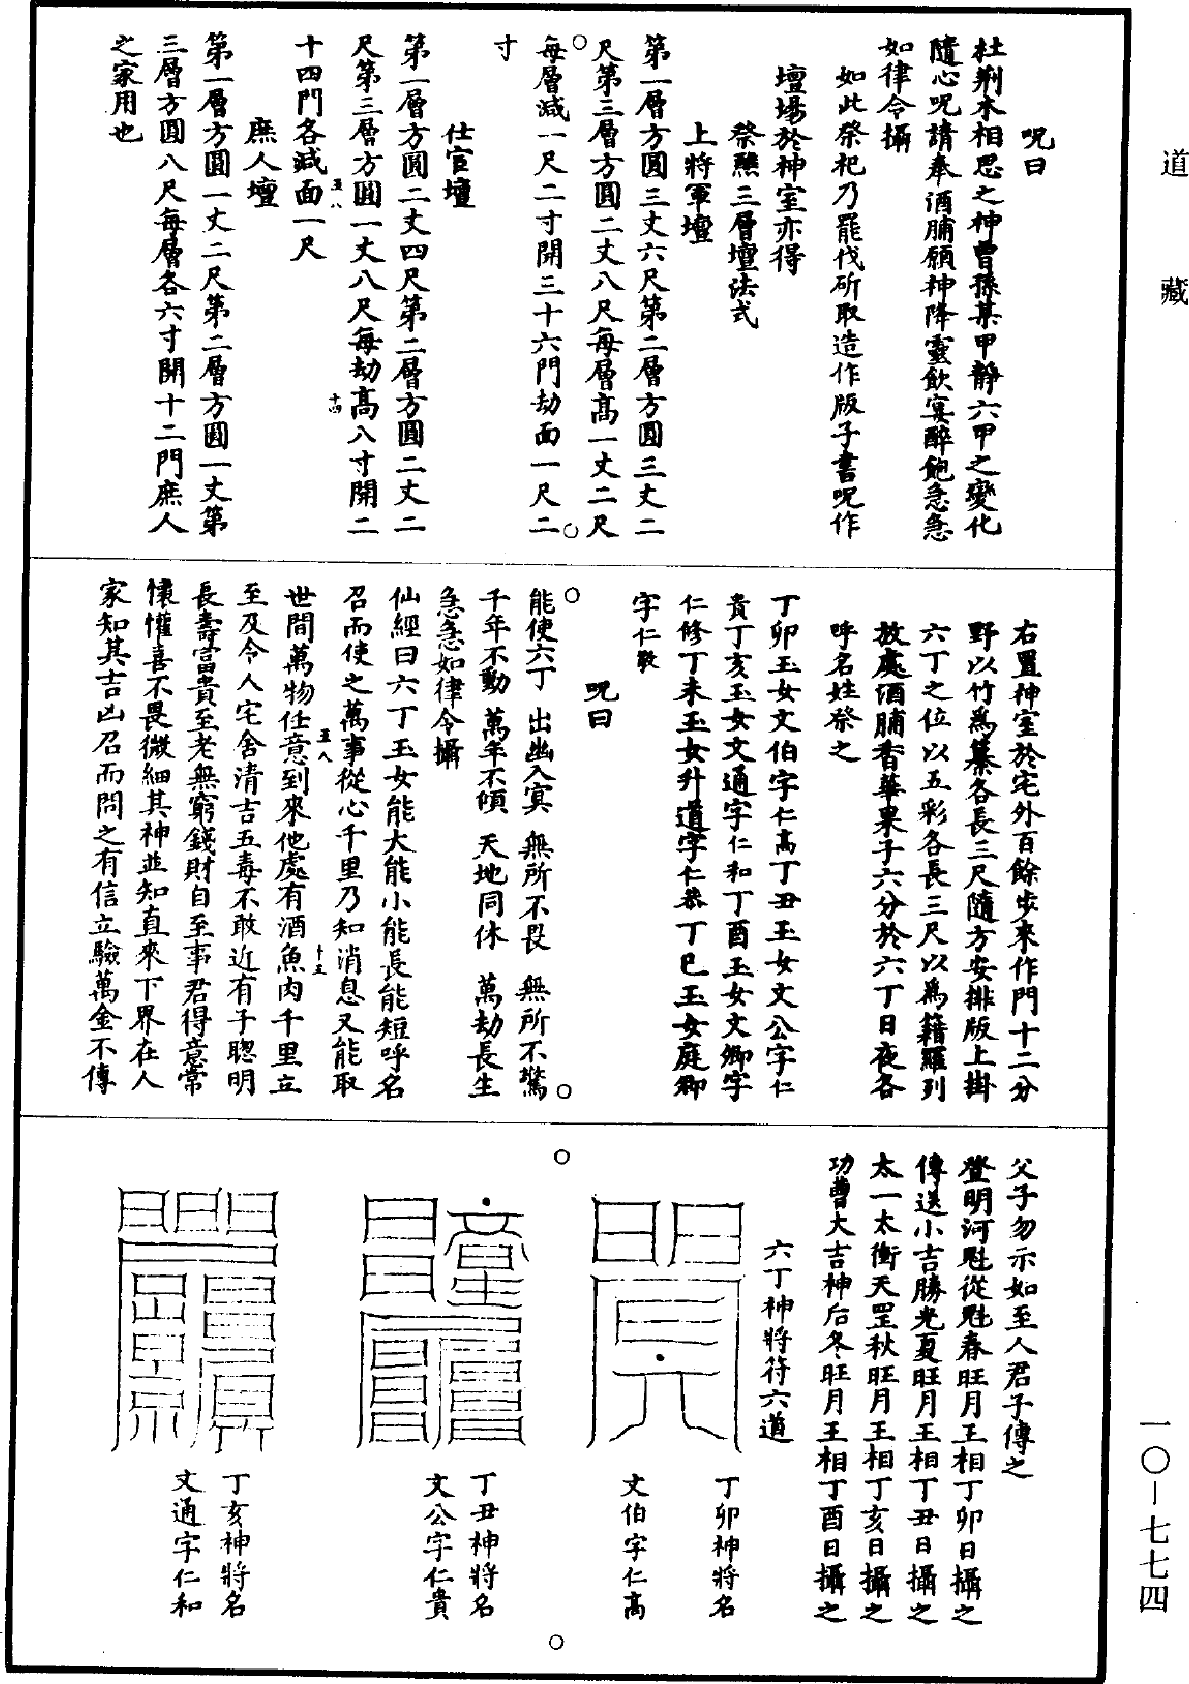 道藏
呪曰
杜荆木相思之神曹孫某甲靜六甲之變化
隨心呪請奉酒脯願神降靈飲宴醉飽急急
如律令攝
如此祭祀乃罷伐斫取造作版子書呪作
壇場於神室亦得
祭醮三層壇法式
上將軍壇
第一層方圓三丈六尺第二層方圓三丈二
尺第三層方圓二丈八尺每層高一丈二尺
每層減一尺二寸開三十六門劫面一尺二
寸
仕官壇
第一層方圓二丈四尺第二層方圓二丈二
尺第三層方圓一丈八尺每劫高八寸開二
五八
十四
十四門各減面一尺
庶人壇
第一層方圓一丈二尺第二層方圓一丈第
三層方圓八尺每層各六寸開十二門庶人
之家用也
右置神室於宅外百餘步來作門十二分
野以竹爲纂各長三尺隨方安排版上掛
六丁之位以五彩各長三尺以爲籍羅列
放處酒脯香華果子六分於六丁日夜各
呼名姓祭之
丁卯玉女文伯字仁高丁丑玉女文公字仁
貴丁亥玉女文通字仁和丁酉玉女文卿字
仁修丁未玉女升道字仁恭丁巳玉女庭卿
字仁敬
呪曰
能使六丁 出幽入冥 無所不畏 無所不驚
千年不動 萬年不傾 天地同休 萬劫長生
急急如律令攝
仙經曰六丁玉女能大能小能長能短呼名
召而使之萬事從心千里乃知消息又能取
五八
十五
世間萬物任意到來他處有酒魚肉千里立
至及令人宅舍清吉五毒不敢近有子聰明
長壽富貴至老無窮錢財自至事君得意常
懷懽喜不畏微細其神並知直來下界在人
家知其吉凶召而問之有信立驗萬金不傳
父子勿示如至人君子傳之
登明河魁從魁春旺月王相丁卯日攝之
傳送小吉勝光夏旺月王相丁丑日攝之
太一太衝天罡秋旺月王相丁亥日攝之
功曹大吉神后冬旺月王相丁酉日攝之
六丁神將符六道
丁卯神將名
文伯字仁高
丁丑神將名
文公字仁貴
丁亥神將名
文通字仁和
一〇—七七四